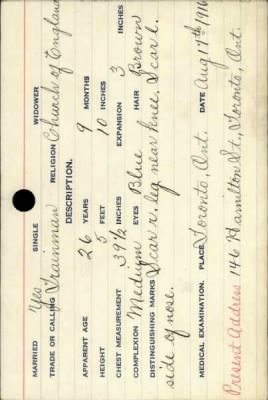 MARRIED Yes SINGLE WIDOWER
TRADE OR CALLING Trainman RELIGION Church of England
DESCRIPTION.
APPARENT AGE 26 YEARS 9 MONTHS
HEIGHT 5 FEET 10 INCHES
CHEST MEASUREMENT 39½ INCHES EXPANSION 3 INCHES
COMPLEXION Medium EYES Blue HAIR Brown
DISTINGUISHING MARKS Scar r. leg near knee. Scar l.
side of nose.
MEDICAL EXAMINATION. PLACE Toronto, Ont. DATE Aug 17th/1916
Present Address 146 Hamilton St., Toronto, Ont.